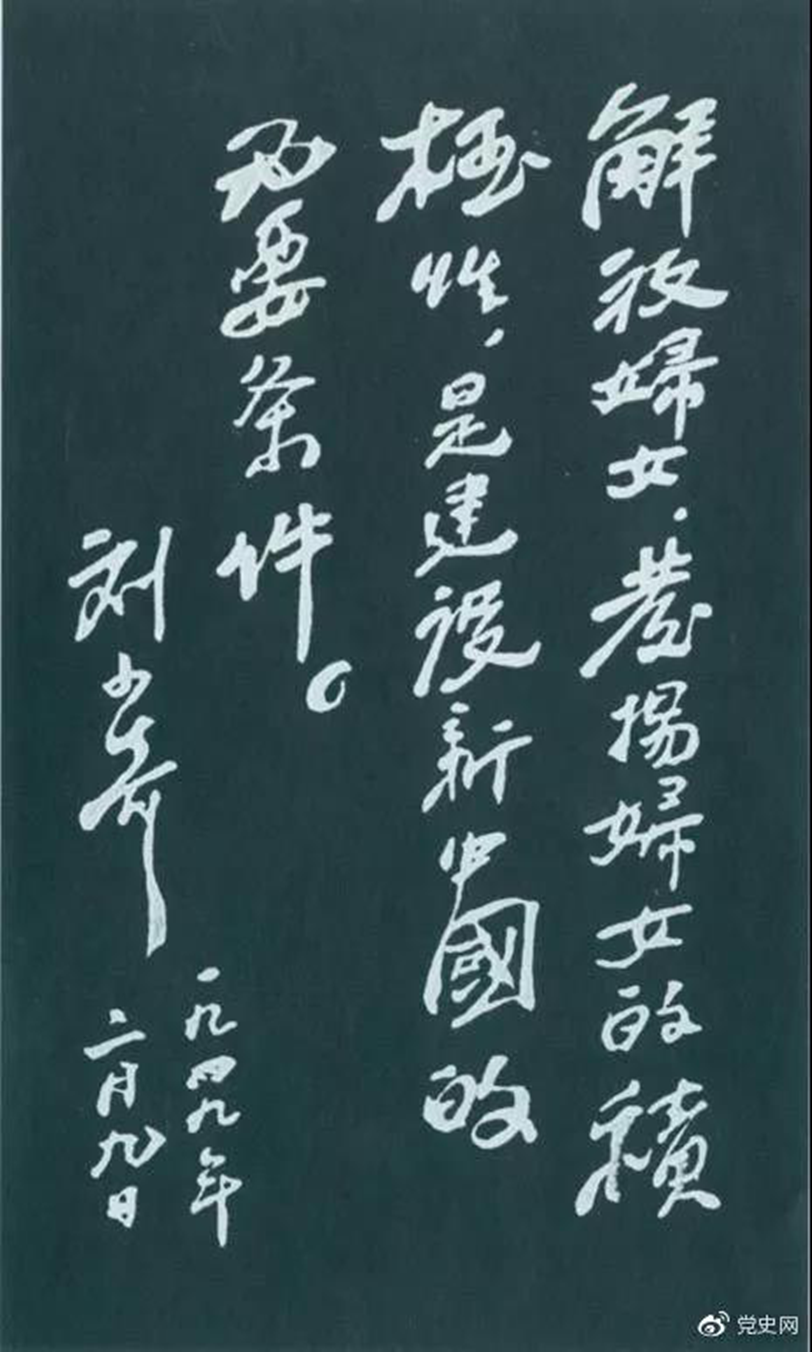 解放婦女，發揚婦女的積
極性，是建设新中國的
必要条件。
刘少奇
一九四九年
二月九日
党史网